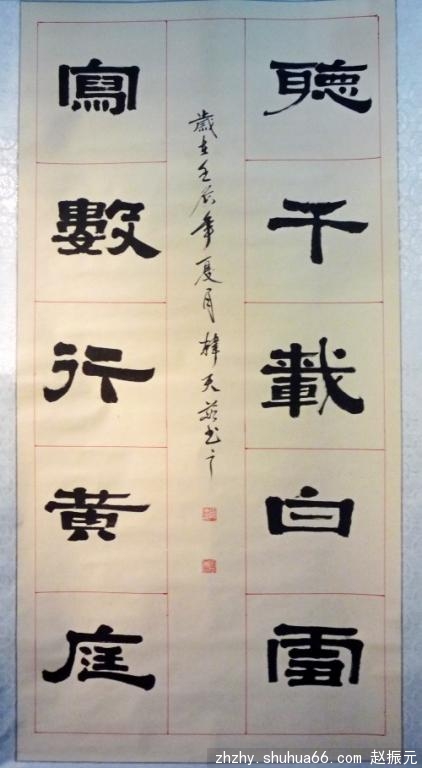 聽千載白雪
歲在壬辰年夏月 天 书之
寫數行黃庭
zhzhy.shuhua66.com 赵振元